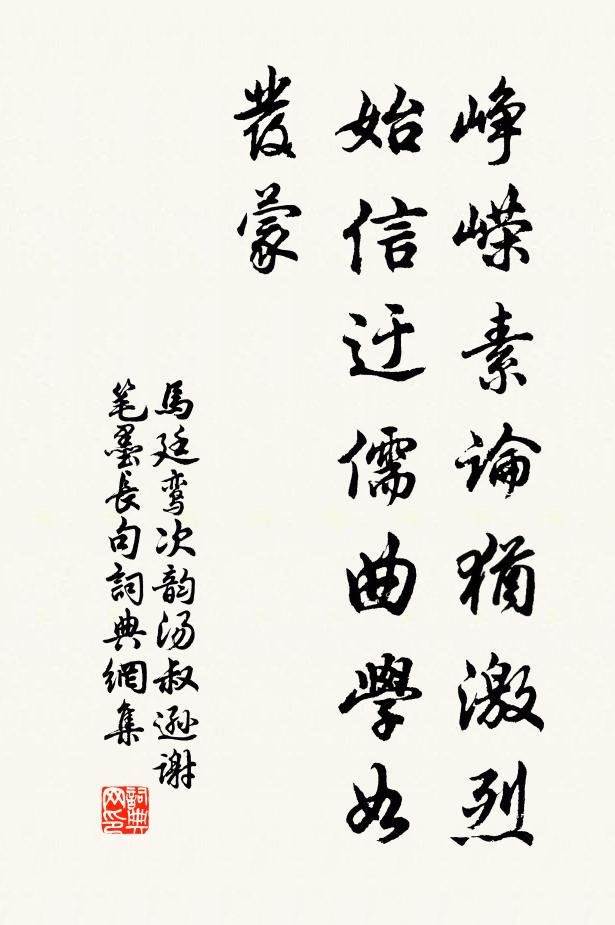 峥嵘素論猶激烈
始信迂儒曲學如
發蒙
馬廷鸾次韵汤叔遜謝
笔墨長句詞典網集
詞典网印